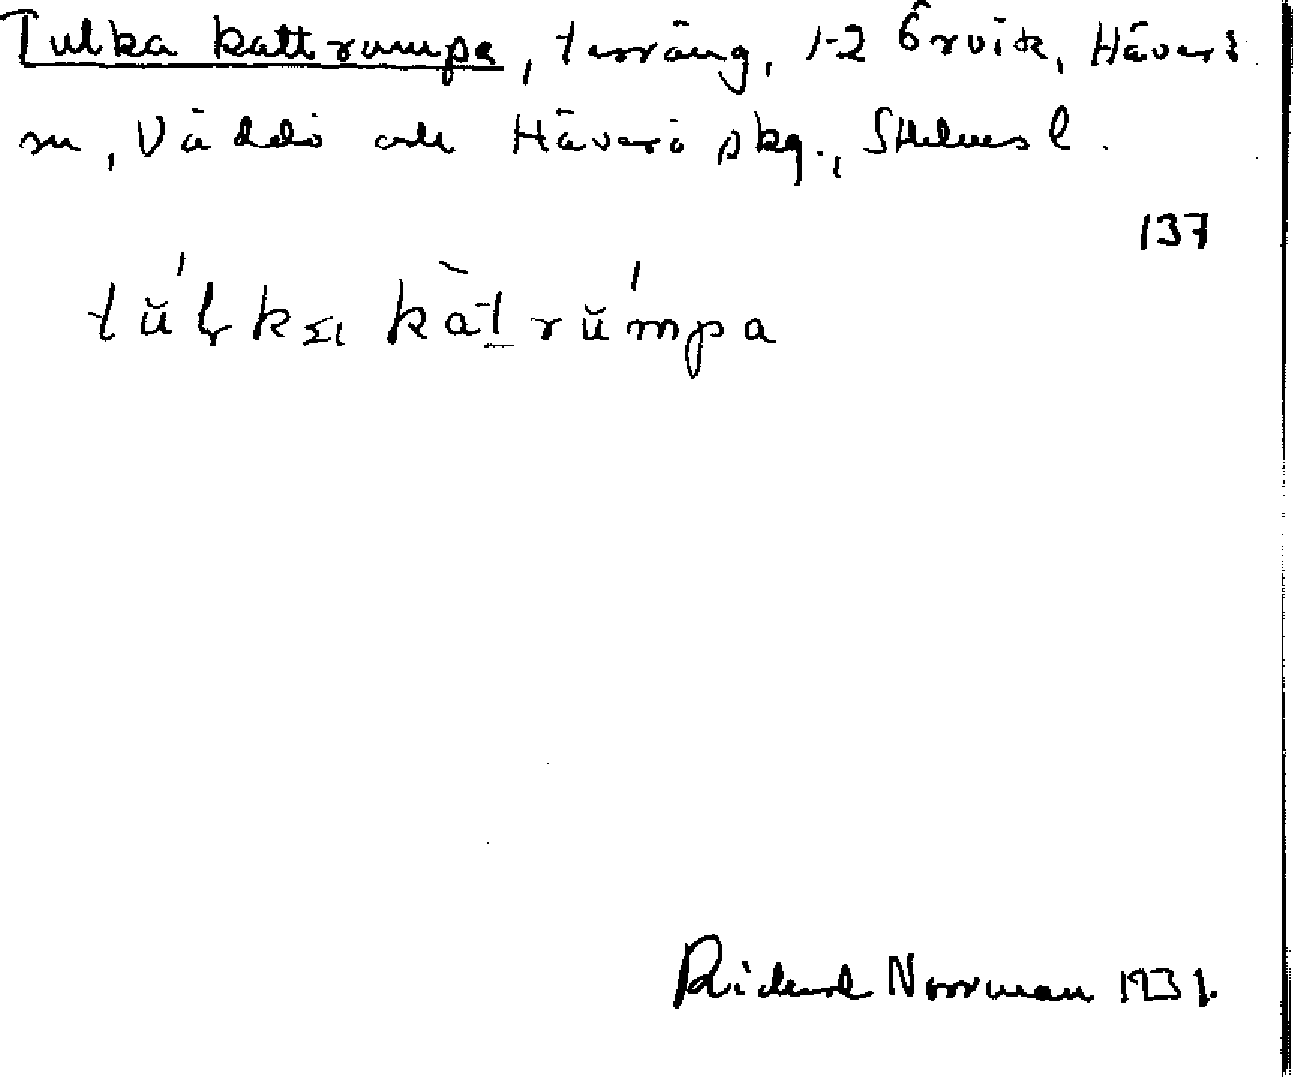 Tulka kattrumpa, terräng, 1-2 Örvik, Häverö
sn, Väddö och Häverö skg., Sthlms l.
137
tŭ́lka kàt rŭ́mpa
Richard Norrman 1931.